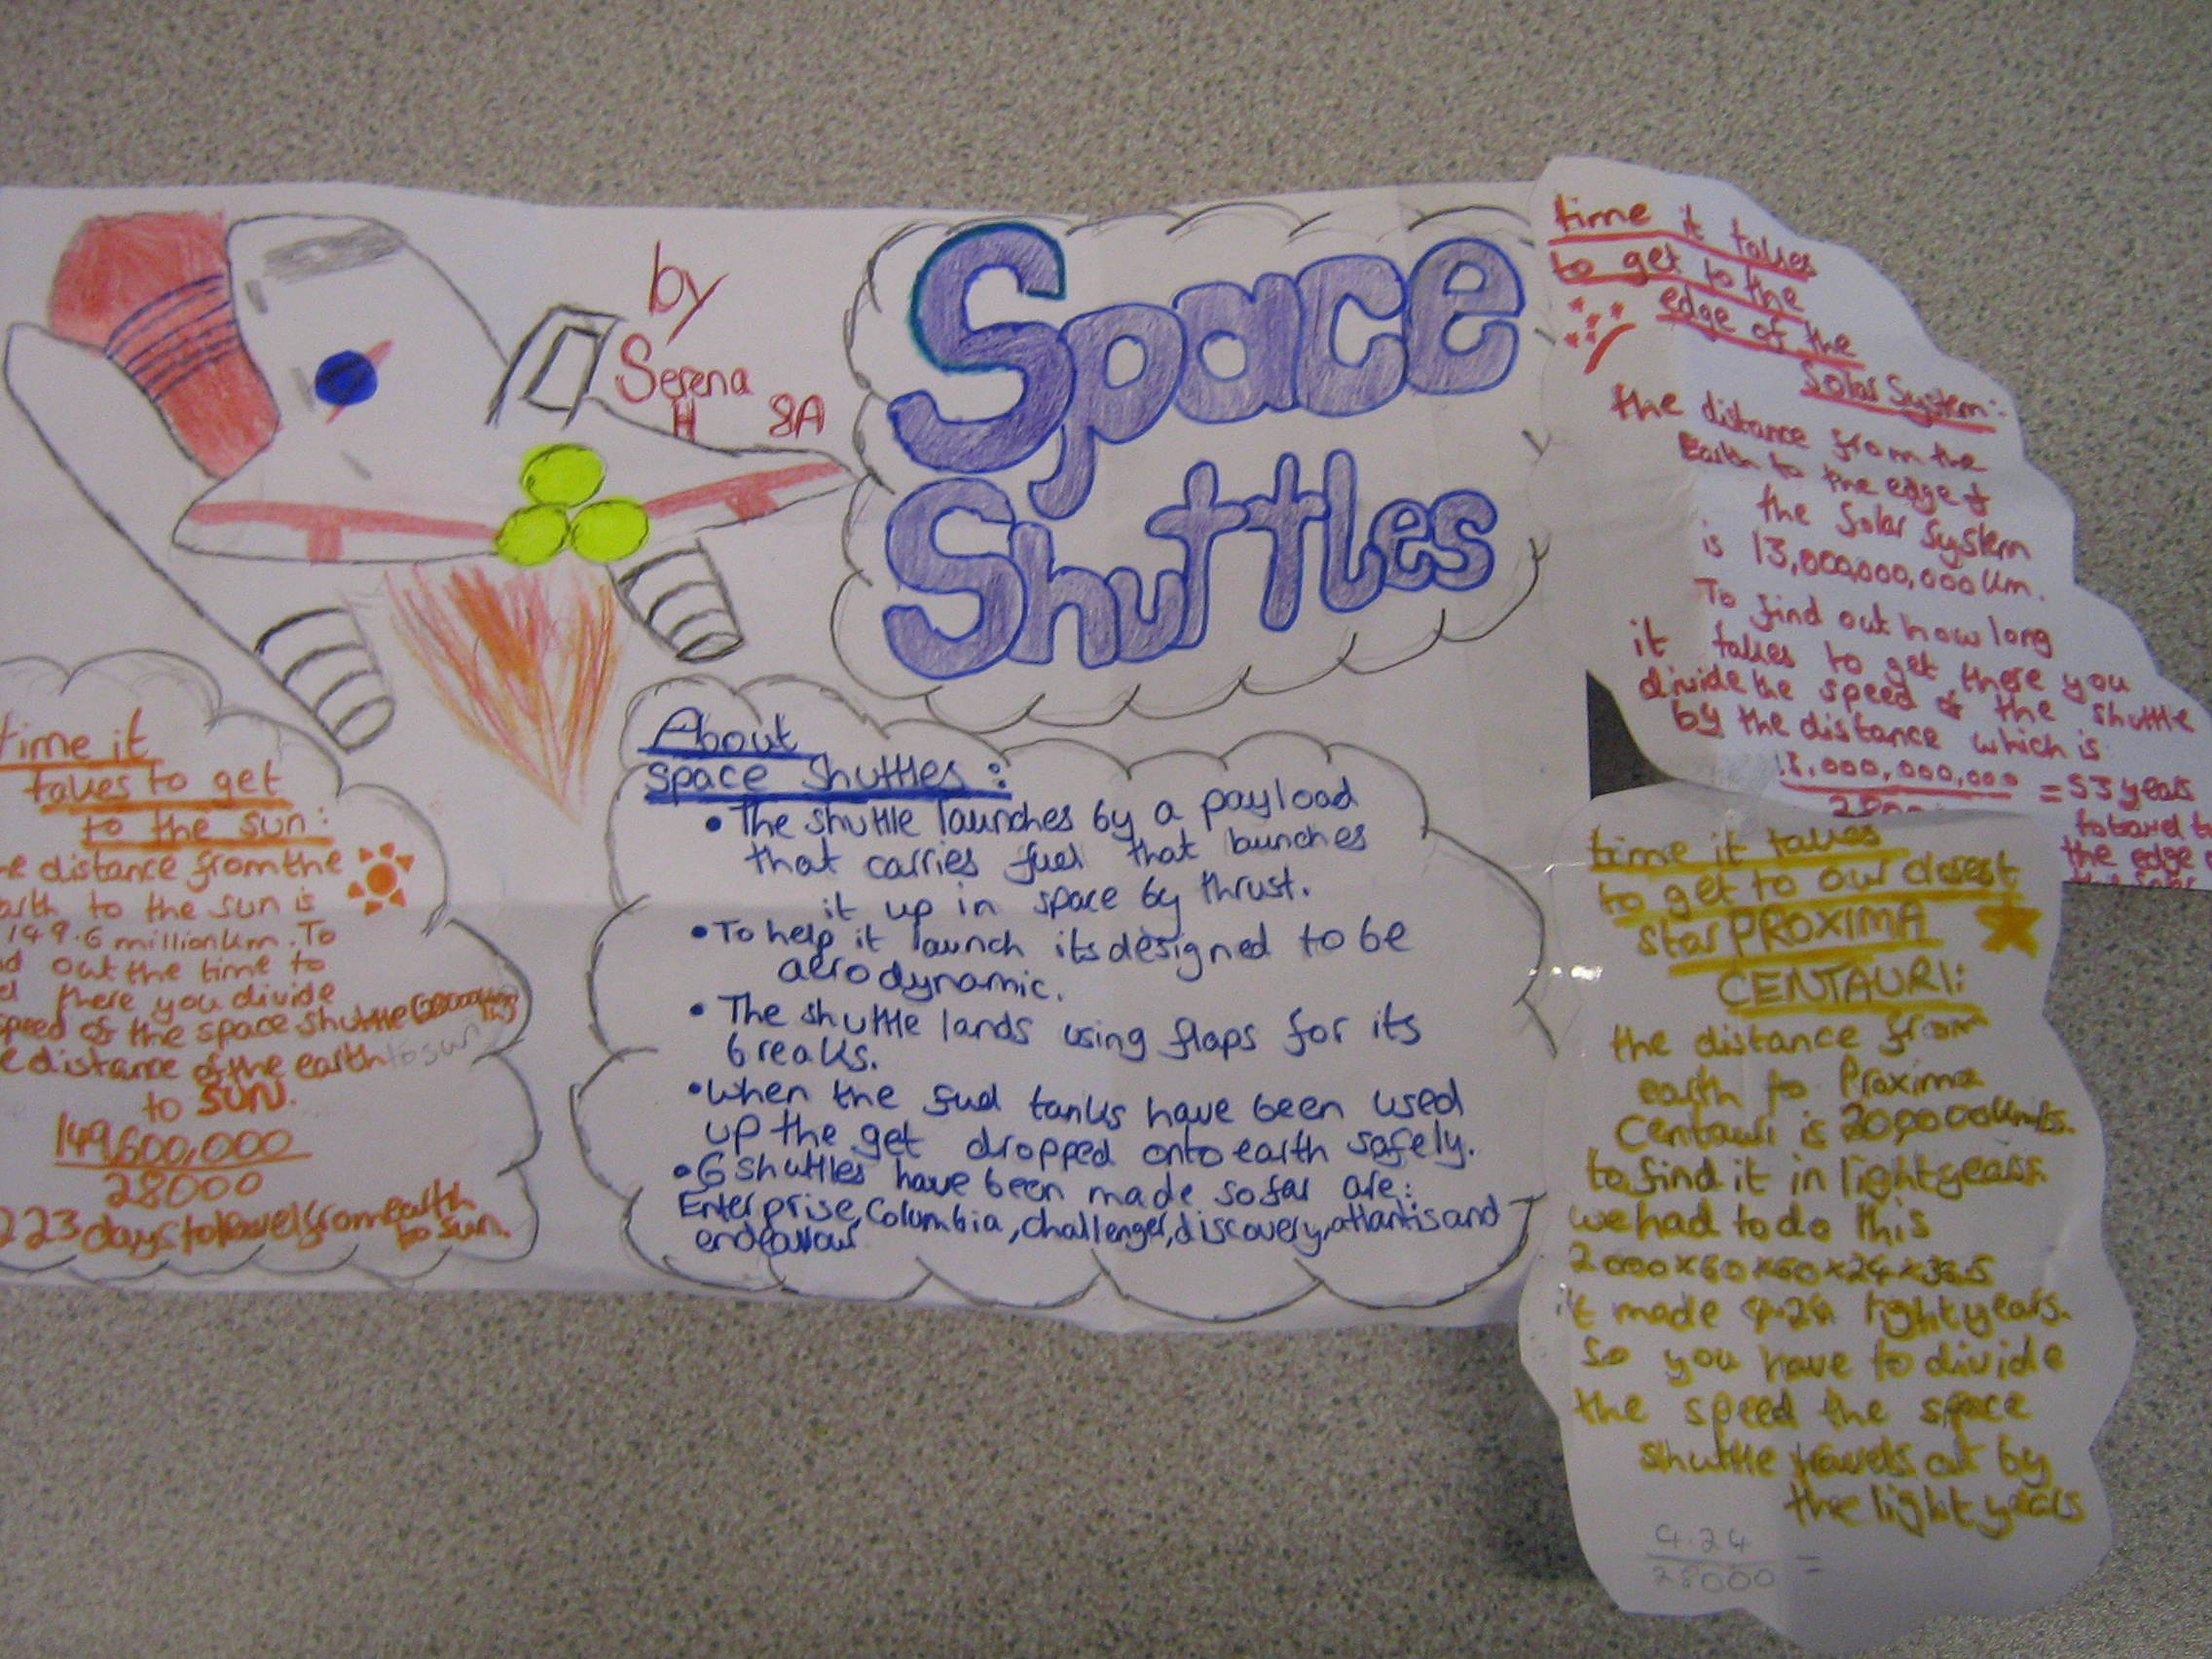 by
Serena
H 8A
Space
Shuttles
time it
takes to get
to the sun:
distance from the
to the sun is
149.6 million km. To
out the time to
there you divide
speed of the space shuttle (28000
distance of the earth to sun
to SUN.
149,600,000
28000
223 days to travel from earth
to sun.
About
space shuttles:
• The shuttle launches by a payload
that carries fuel that launches
it up in space by thrust.
• To help it launch its designed to be
aerodynamic.
• The shuttle lands using flaps for its
breaks.
• When the fuel tanks have been used
up the get dropped onto earth safely.
• 6 shuttles have been made so far are:
Enterprise, Columbia, challenger, discovery, atlantis and
endeavour
time it takes
to get to the
edge of the
Solar System:
the distance from the
Earth to the edge of
the Solar System
is 13,000,000,000 km.
To find out how long
it takes to get there you
divide the speed of the shuttle
by the distance which is
13,000,000,000 = 53 years
to travel to
the edge
time it takes
to get to our closest
star PROXIMA
CENTAURI:
the distance from
earth to Proxima
Centauri is
to find it in lightyears.
we had to do this
2000x60x60x24x365
it made 4.24 lightyears.
So you have to divide
the speed the space
shuttle travels at by
the light years
4.24
28000 =